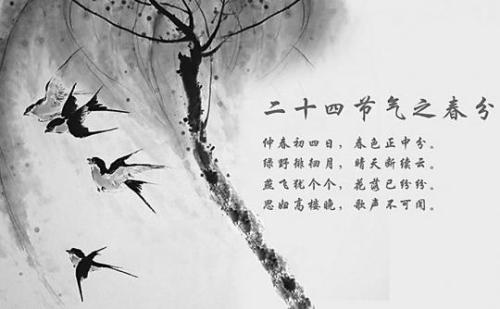 二十四节气之春兮
仲春初四日，春色正中分。
绿野徘徊月，晴天断续云。
燕飞犹个个，花落已纷纷。
思妇高楼晚，歌声不可闻。